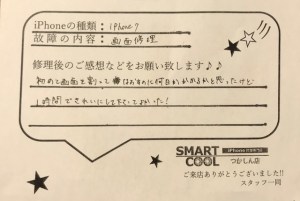 iPhoneの種類：iPhone7
故障の内容：画面修理
修理後のご感想などをお願い致します♪♪
初めて画面を割って なおすのに何日かかかるかと思ったけど
1時間できれいにして下さってよかった！
SMART COOL
iPhone
つかしん店
ご来店ありがとうございました!!
スタッフ一同